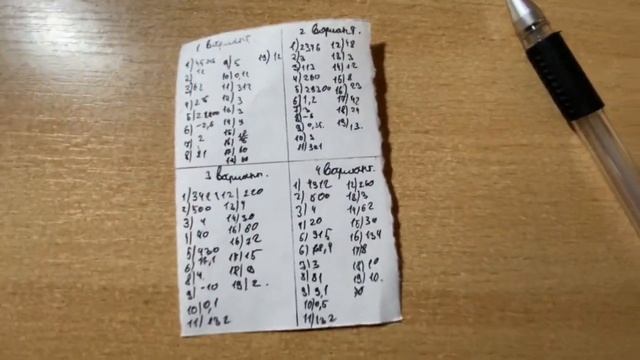 1 вариант
1) 4506
2) 12
3) 82
4) 25
6) -2,6
7) 2
8) 21
9) 5
10) 0,12
11) 312
12) 3
13) 3
14) 9
19) 12
2 вариант.
1) 2346
2) 3
3) 113
4) 280
5) 28200
6) 1,2
7) 3
8) -6
9) 0,25.
10) 3
11) 301
12) 48
13) 3
14) 12
15) 8
16) 23
17) 42
18) 24
19) 13.
3 вариант.
1) 341
2) 500
3) 4
4) 40
5) 430
8) 4.
9) -10
10) 0,1
11) 132
12) 220
13) 4
14) 30
15) 60
16) 12
17) 15
19) 2.
4 вариант.
1) 4312
2) 600
3) 4
4) 20
5) 315
7) 3
8) 81
9) 9,1
10) 0,5
11) 132
12) 260
13) 3
14) 62
15) 30
16) 134
17) 8
18) 10
19) 10.